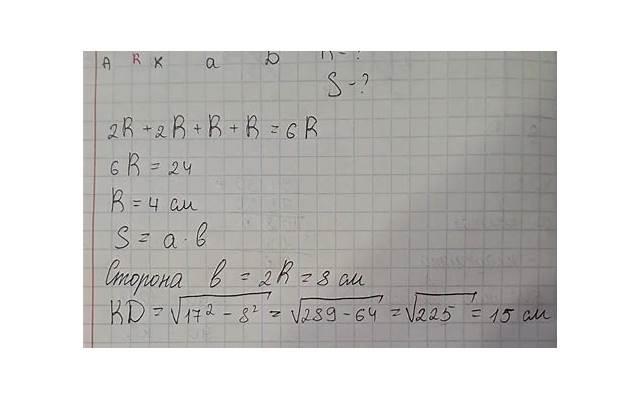 A R K a D R - ?
S - ?
2R + 2R + R + R = 6R
6R = 24
R = 4 см
S = a · b
Сторона b = 2R = 8 см
KD = √17² - 8² = √289 - 64 = √225 = 15 см